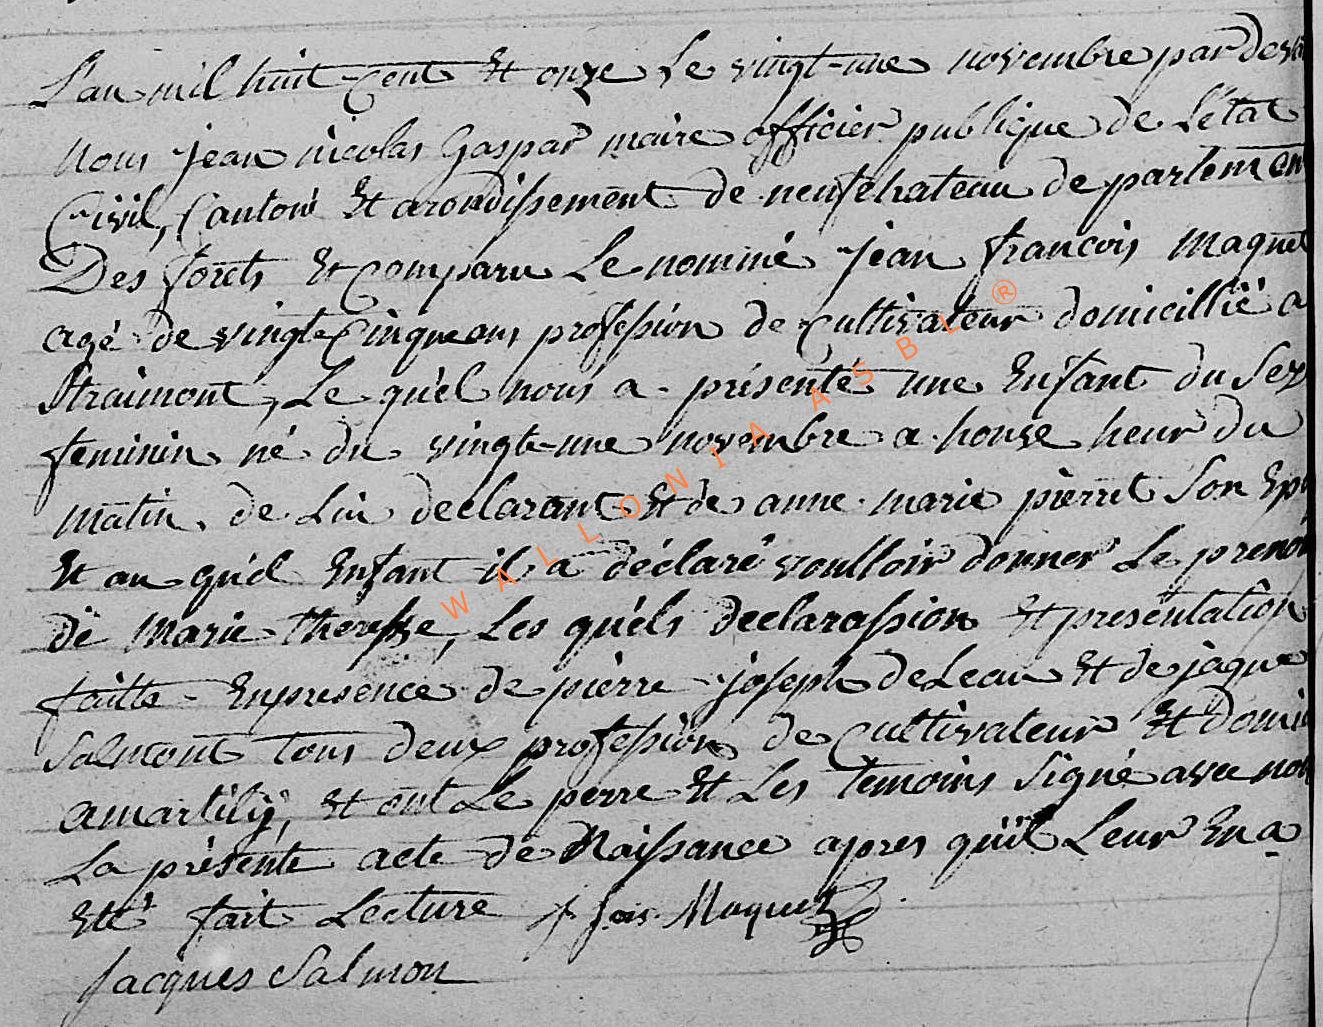 L'an mil huit-cent Et onze Le vingt-une novembre par deva
Nous jean nicolas Gaspar maire officier publique de L'état
Civil, Canton Et arondissement de neufchateau departement
Des forets Et comparu Le nommé jean francois Maquet
agé de vingte cinque ans profession de cultivateur domicillié a
Straimont, Le quel nous a présenté une Enfant du Sex
feminin né du vingte-une novembre a honse heur du
matin de Lui declarant Et de anne marie pierret Son Ep
Et au quel Enfant il a déclaré voulloir donner Le prenom
de Marie theresse, Les quéls declarassion Et presentation
faitte En presence de pierre joseph deLeau Et de jaque
Salmont tous deux profession de cultivateur Et domi
a martilly, Et ont Le perre Et Les temoins Signé avec nou
La présente acte de Naissance apres quil Leur En a
Eté fait Lecture J fois Maquet
Jacques Salmon
WALLONIA ASBL ®